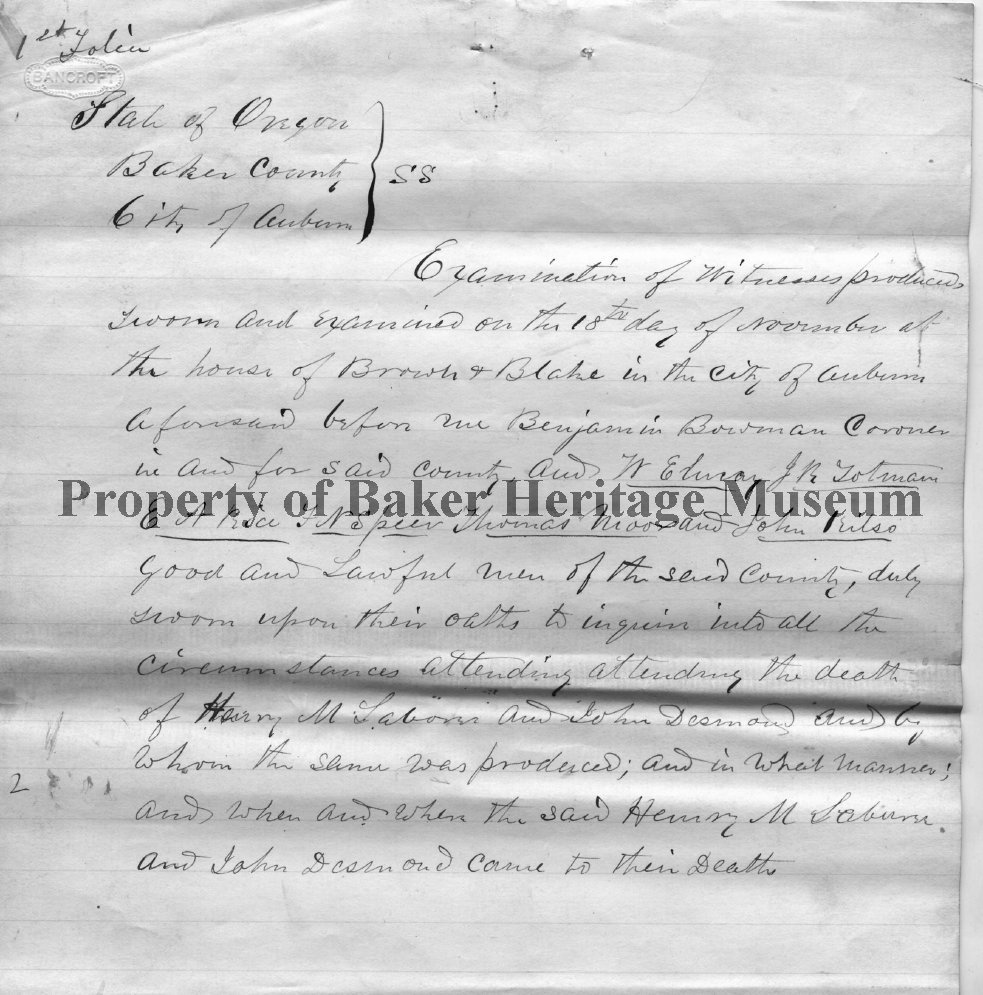 1st Folio
BANCROFT
State of Oregon
Baker County } SS
City of Auburn
Examination of Witnesses produced
sworn and examined on the 18th day of November at
the house of Brown & Blake in the City of Auburn
aforesaid before me Benjamin Bowman Coroner
in and for said county, and W Elway J R Totman
Property of Baker Heritage Museum
E A Rice F N Speer Thomas Moor and John Kilso
Good and Lawful men of the said County, duly
sworn upon their oaths to inquire into all the
circumstances attending attending the death
of Henry M Laborn and John Desmond and by
Whom the same was produced; and in what manner;
2
and when and where the said Henry M Laburn
and John Desmond came to their Deaths